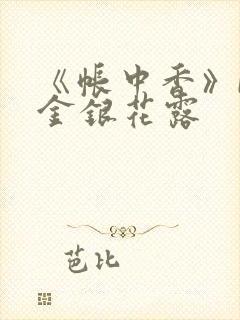 《帐中香》
金银花露
芭比